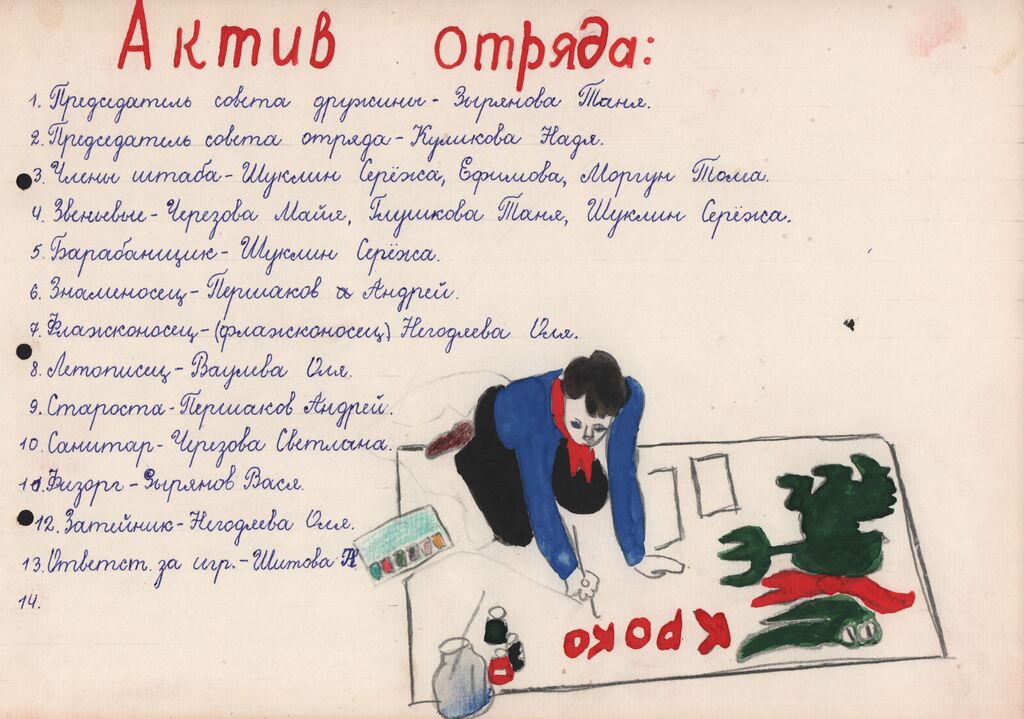 Актив отряда:
1. Председатель совета дружины - Зырянова Таня.
2. Председатель совета отряда - Куликова Надя.
3. Члены штаба - Шуклин Серёжа, Ефимова, Моргун Тома.
4. Звеньевые - Черезова Майя, Глушкова Таня, Шуклин Серёжа.
5. Барабанщик - Шуклин Серёжа.
6. Знаменосец - Першаков Андрей.
7. Флажконосец - (флажконосец) Негодяева Оля.
8. Летописец - Ваулева Оля.
9. Староста - Першаков Андрей.
10. Санитар - Черезова Светлана.
11. Физорг - Зырянов Вася.
12. Затейник - Негодяева Оля.
13. Ответст. за игр. - Шитова
14.
Кроко